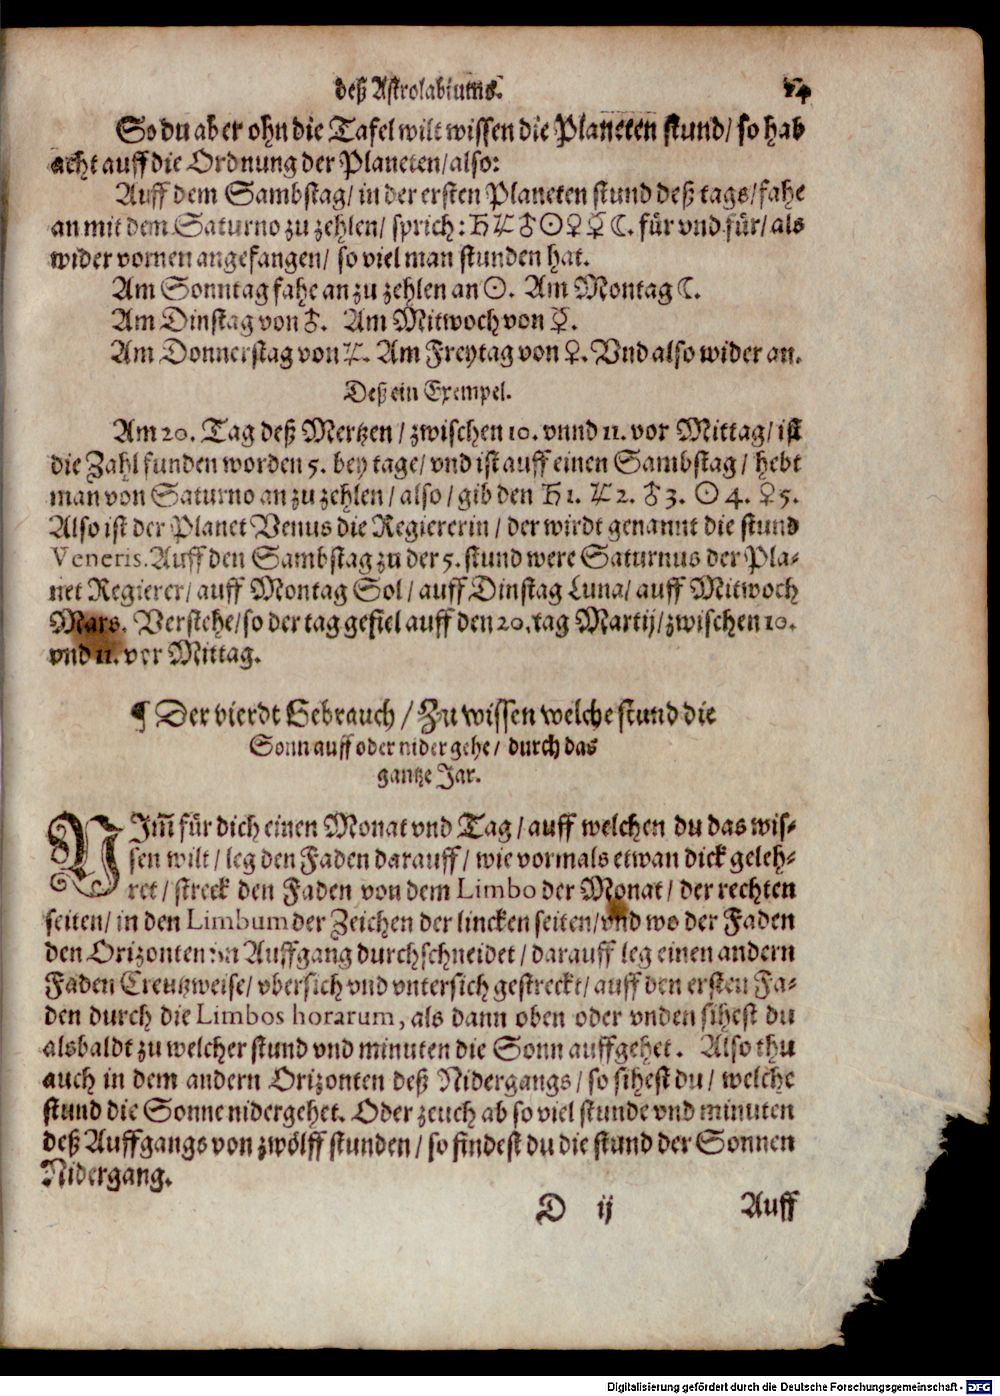 deß Astrolabiums. 14
So du aber ohn die Tafel wilt wissen die Planeten stund/ so hab
acht auff die Ordnung der Planeten/ also:
Auff dem Sambstag/ in der ersten Planeten stund deß tags/ fahe
an mit dem Saturno zu zehlen/ sprich: ♄ ♃ ♂ ☉ ♀ ☿ ☾. für vnd für/ als
wider vornen angefangen/ so viel man stunden hat.
Am Sonntag fahe an zu zehlen an ☉. Am Montag ☾.
Am Dinstag von ♂. Am Mitwoch von ☿.
Am Donnerstag von ♃. Am Freytag von ♀. Vnd also wider an.
Deß ein Exempel.
Am 20. Tag deß Mertzen / zwischen 10. vnnd 11. vor Mittag/ ist
die Zahl funden worden 5. bey tage/ vnd ist auff einen Sambstag / hebt
man von Saturno an zu zehlen / also / gib den ♄ 1. ♃ 2. ♂ 3. ☉ 4. ♀ 5.
Also ist der Planet Venus die Regiererin / der wirdt genannt die stund
Veneris. Auff den Sambstag zu der 5. stund were Saturnus der Pla-
net Regierer/ auff Montag Sol / auff Dinstag Luna/ auff Mitwoch
Mars. Verstehe/ so der tag gefiel auff den 20. tag Martij/ zwischen 10.
vnd 11. vor Mittag.
¶ Der vierdt Gebrauch / Zu wissen welche stund die
Sonn auff oder nider gehe / durch das
gantze Jar.
NIm̃ für dich einen Monat vnd Tag / auff welchen du das wis-
sen wilt / leg den Faden darauff / wie vormals etwan dick geleh-
ret / streck den Faden von dem Limbo der Monat / der rechten
seiten/ in den Limbum der Zeichen der lincken seiten/ vnd wo der Faden
den Orizonten im Auffgang durchschneidet / darauff leg einen andern
Faden Creutzweise/ vbersich vnd vntersich gestreckt/ auff den ersten Fa-
den durch die Limbos horarum, als dann oben oder vnden sihest du
alsbaldt zu welcher stund vnd minuten die Sonn auffgehet. Also thu
auch in dem andern Orizonten deß Nidergangs / so sihest du / welche
stund die Sonne nidergehet. Oder zeuch ab so viel stunde vnd minuten
deß Auffgangs von zwölff stunden / so findest du die stund der Sonnen
Nidergang.
D ij Auff
Digitalisierung gefördert durch die Deutsche Forschungsgemeinschaft - DFG